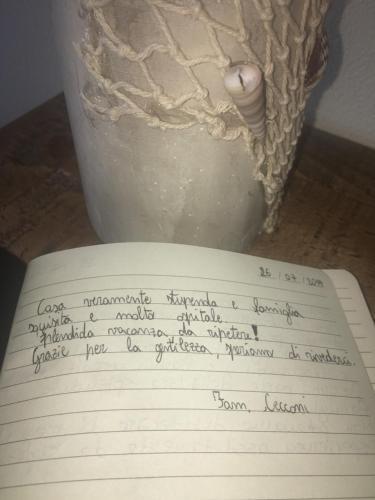 26 / 07 / 2019
Casa veramente stupenda e famiglia
squisita e molto ospitale
splendida vacanza da ripetere!
Grazie per la gentilezza, speriamo di rivederci.
Fam. Cecconi